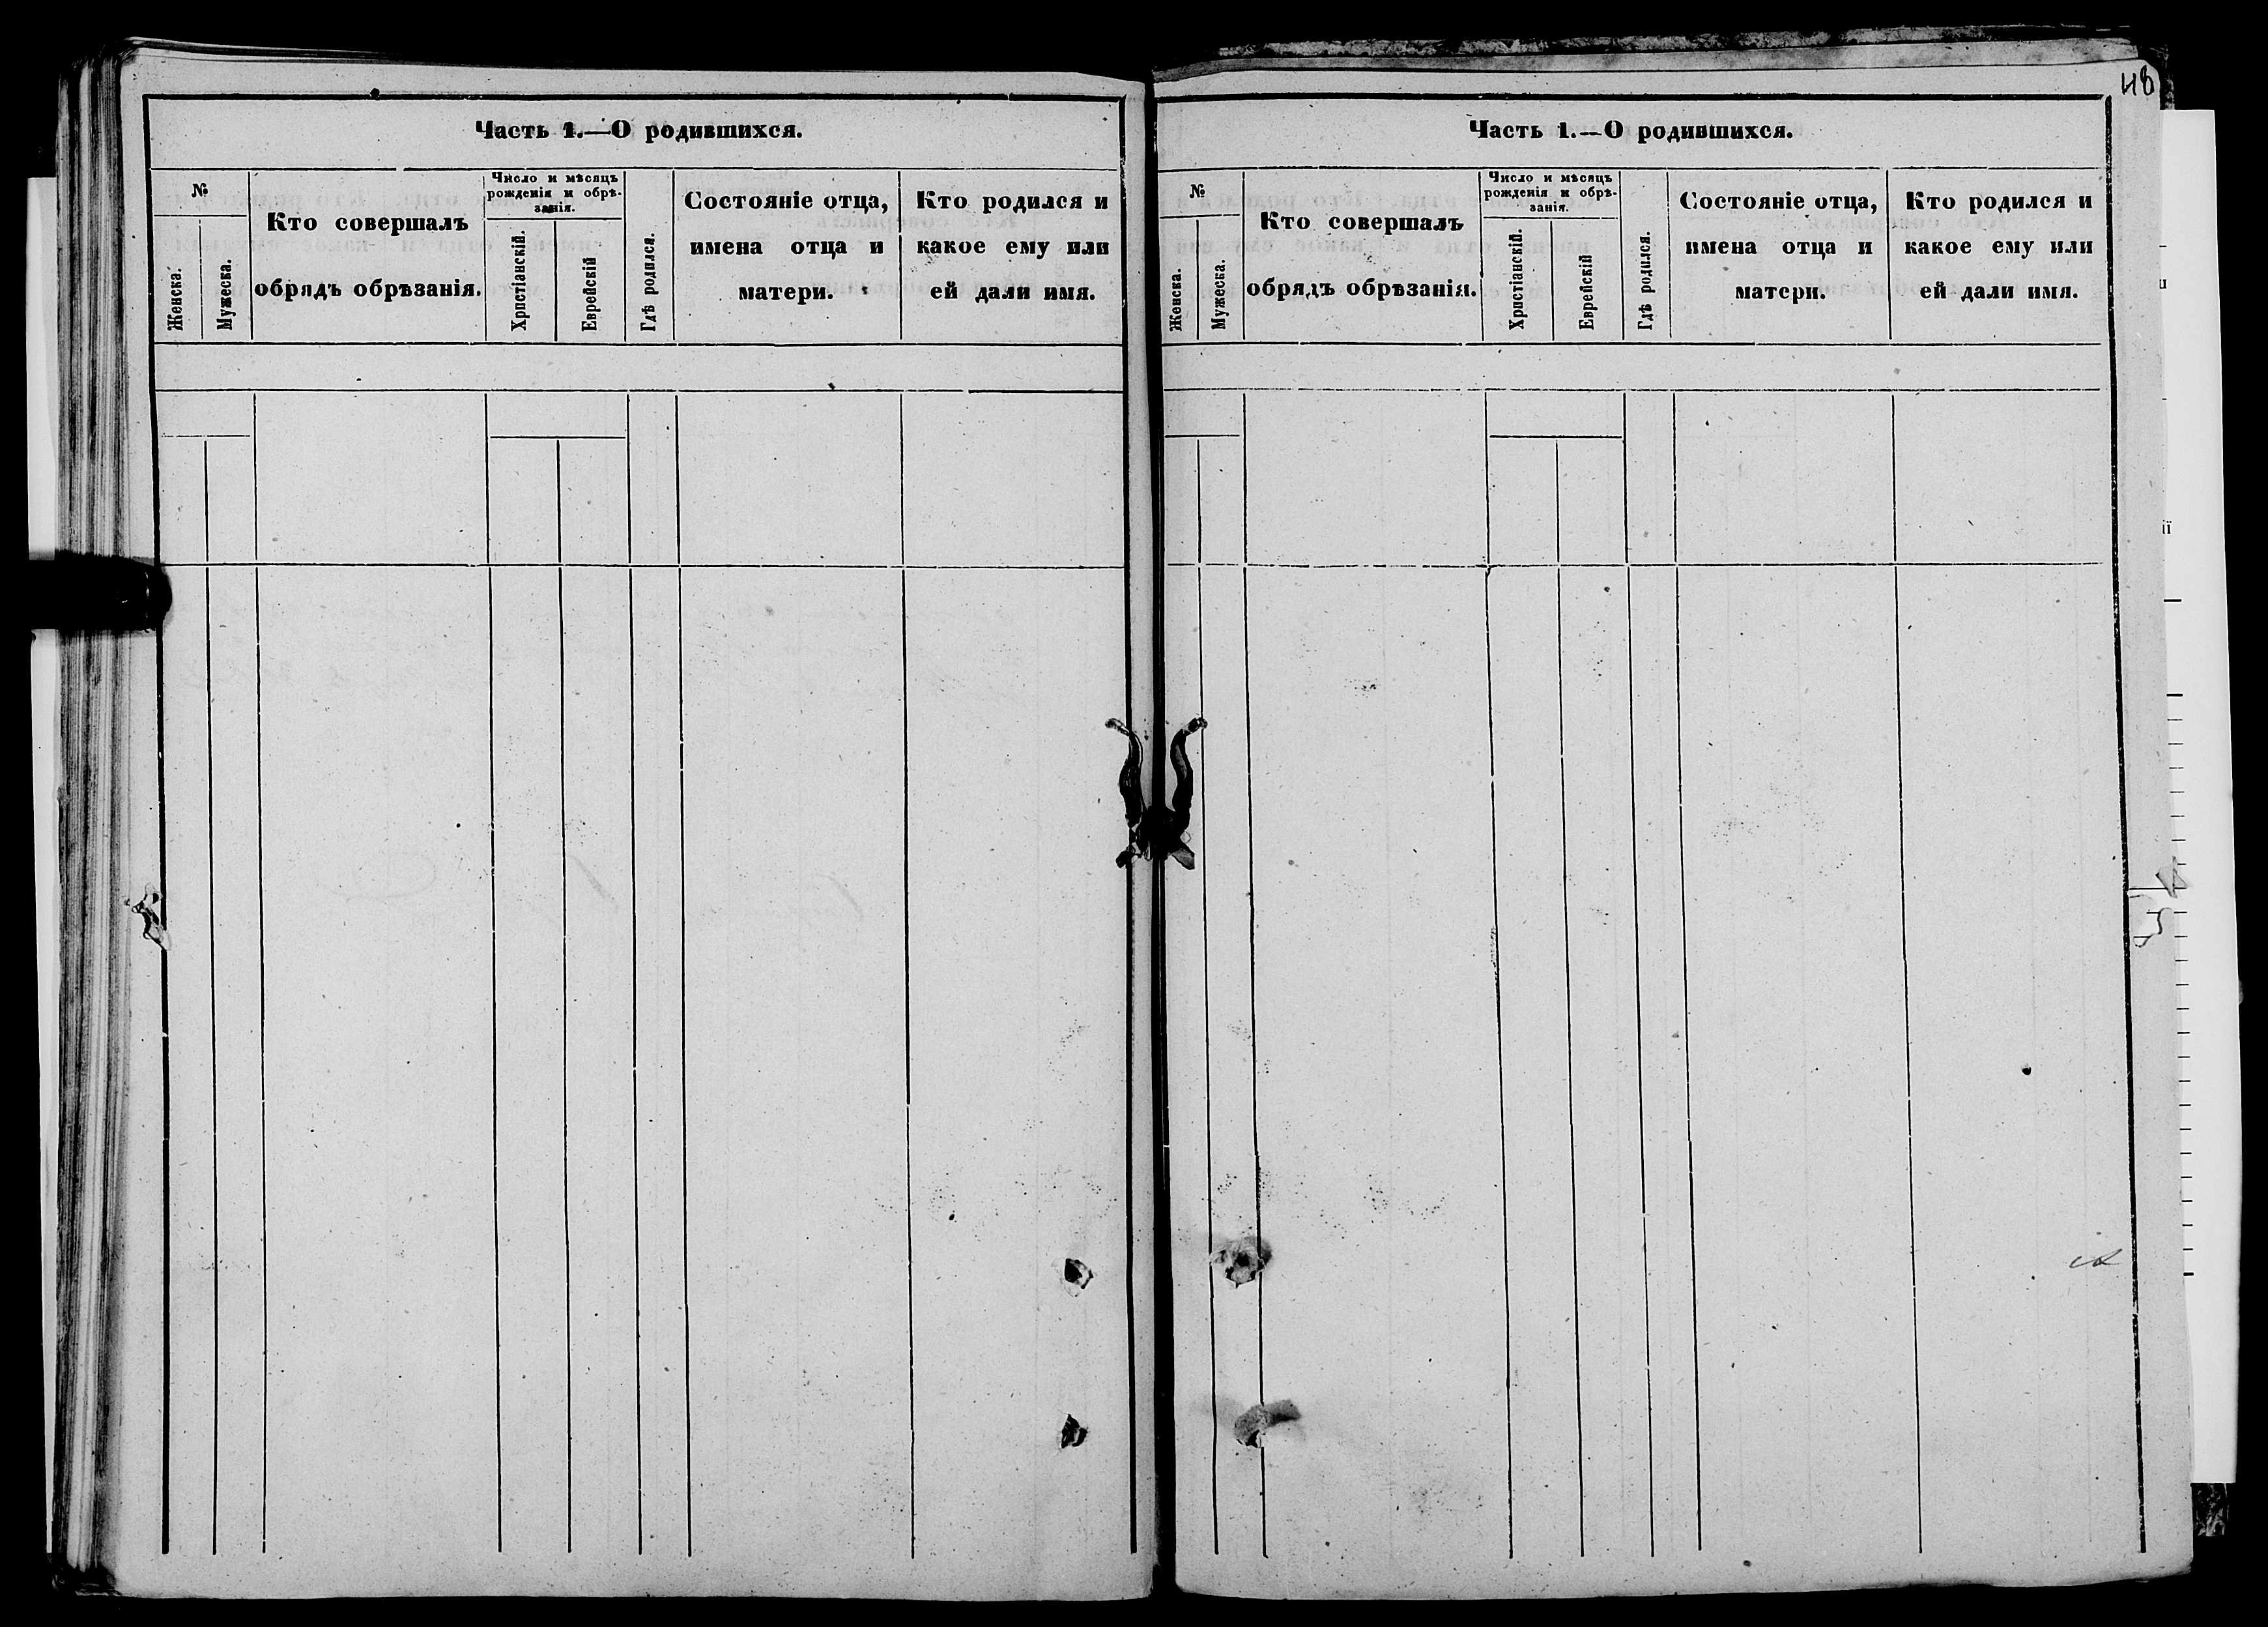 48
Часть 1.—О родившихся.
№
Женска.
Мужеска.
Кто совершалъ
обрядъ обрѣзанія.
Число и мѣсяцъ
рожденія и обрѣ-
занія.
Христіанскій.
Еврейскій
Гдѣ родился.
Состояніе отца,
имена отца и
матери.
Кто родился и
какое ему или
ей дали имя.
Часть 1.—О родившихся.
№
Женска.
Мужеска.
Кто совершалъ
обрядъ обрѣзанія.
Число и мѣсяцъ
рожденія и обрѣ-
занія.
Христіанскій.
Еврейскій
Гдѣ родился.
Состояніе отца,
имена отца и
матери.
Кто родился и
какое ему или
ей дали имя.